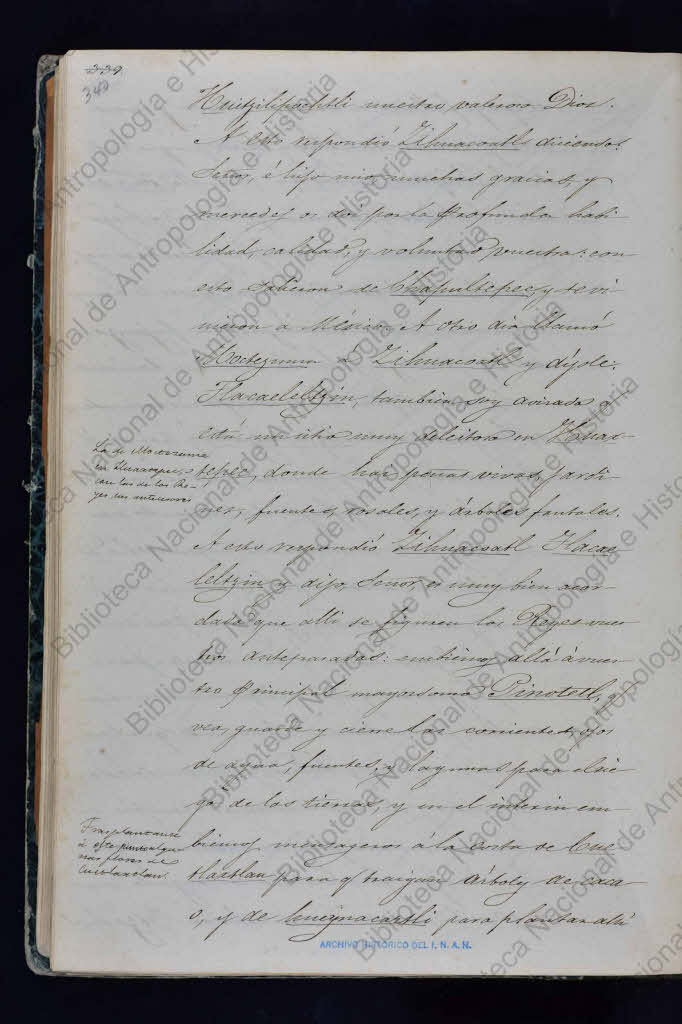 339
340
Huitzilipochtli nuestro valeroso Dios.
A esto respondió Zihuacoatl diciendo:
Señor, é hijo mio, muchas gracias, y
mercedes os doi por la profunda habi
lidad, calidad, y voluntad vuestra: con
esto salieron de Chapultepec, y se vi
nieron a México. A otro dia llamó
Moctezuma á Zihuacoatl y díjole:
Tlacaeleltzin, tambien soy avisado q
está un sitio muy deleitoso en Huax-
tepec, donde hai peñas vivas, jardi
nes, fuentes, rosales, y árboles frutales.
A esto respondió Zihuacoatl Tlacae
leltzin y dijo, Señor, es muy bien acor
dado que alli se figuren los Reyes vues
tros antepasados: enbiemos allá á vues
tro principal mayordomo Pinotetl, q
vea, guarde y cierre las corrientes, ojos
de agua, fuentes, y lagunas para el rie
go de las tierras, y en el interin em
biemos mensageros á la costa de Cue
tlaxtlan para q traigan árboles de caca
o, y de hueynacaztli para plantar alli
La de Moctezuma
en Huaxtepec,
con las de los Re-
yes sus antecesores
Trasplantanse
á este punto algu
nas flores de
Cuetlaxtlan.
ARCHIVO HISTÓRICO DEL I. N. A. H.
Biblioteca Nacional de Antropología e Historia